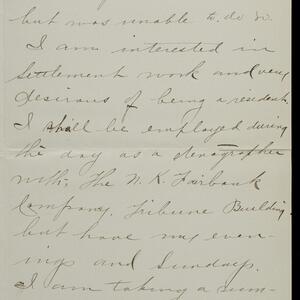 but was unable to do so.
I am interested in
settlement work and very
desirous of being a resident.
I shall be employed during
the day as a stenographer
with, The N. K. Fairbank
Company, Tribune Building.
but have my even-
ings and Sundays.
I am taking a sum-